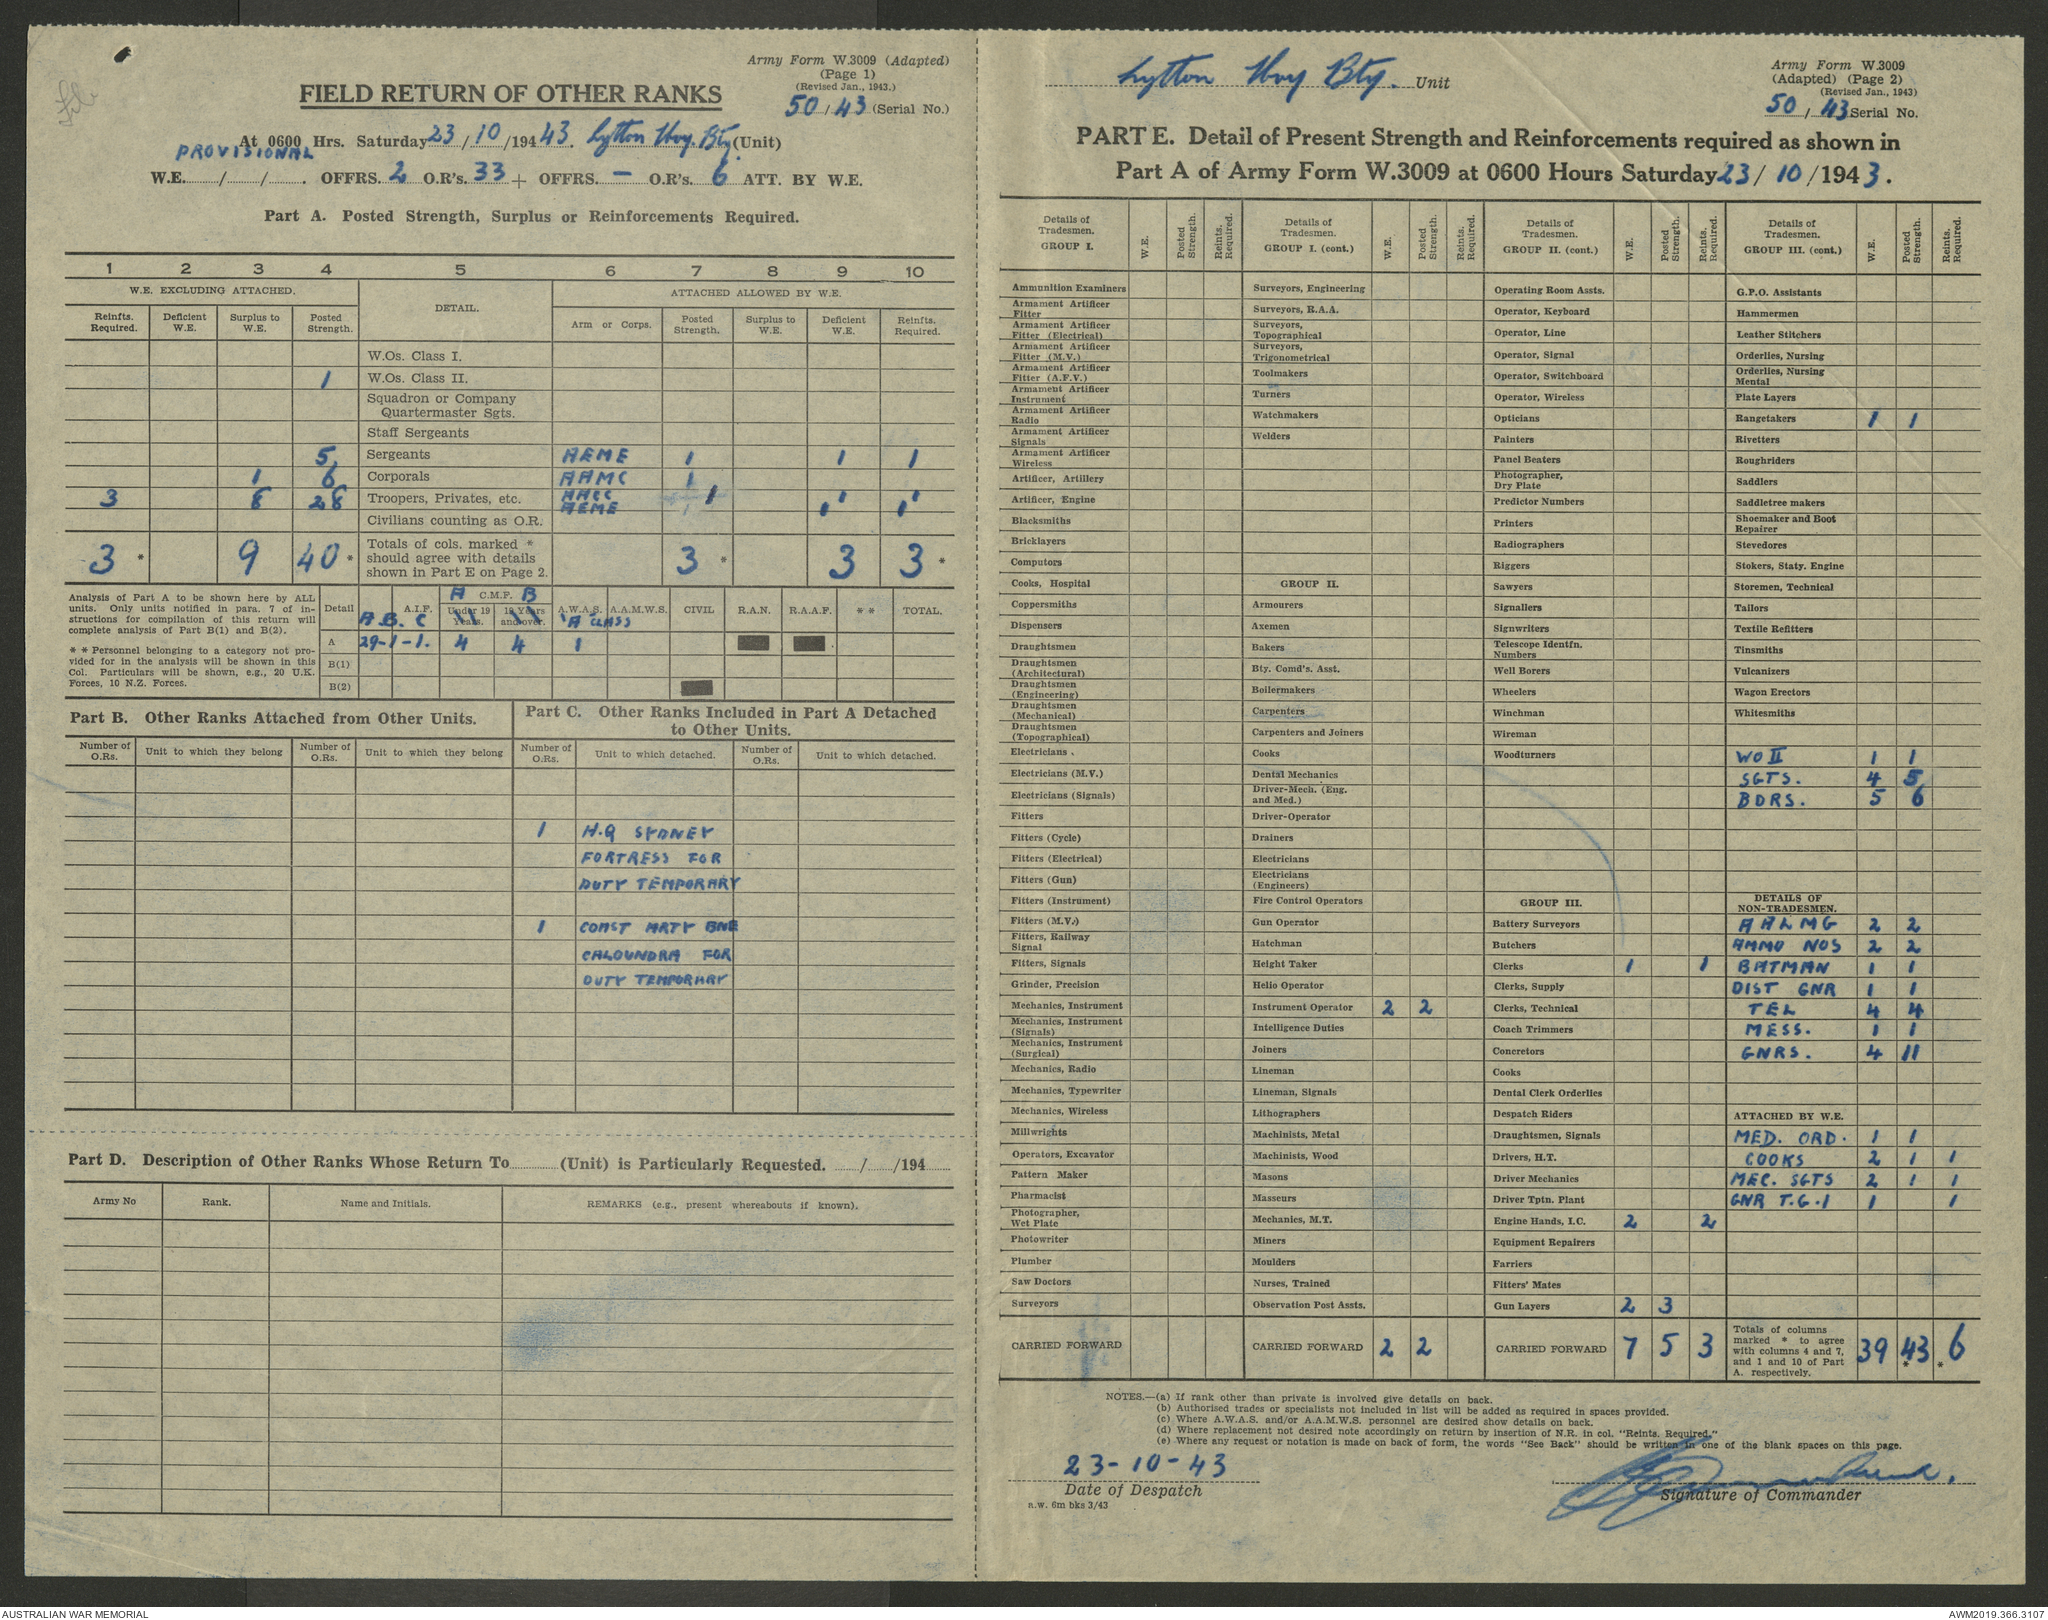 Army Form W.3009 (Adapted)
(Page 1)
(Revised Jan., 1943.)
50/43 (Serial No.)
FIELD RETURN OF OTHER RANKS
At 0600 Hrs. Saturday 23/10/1943. Lytton Hvy. Bty. (Unit)
PROVISIONAL
W.E. ....../....../...... OFFRS. 2 O.R's. 33 + OFFRS. – O.R's. 6 ATT. BY W.E.
Part A. Posted Strength, Surplus or Reinforcements Required.
1 2 3 4 5 6 7 8 9 10
W.E. EXCLUDING ATTACHED. DETAIL. ATTACHED ALLOWED BY W.E.
Reinfts. Required. Deficient W.E. Surplus to W.E. Posted Strength. Arm or Corps. Posted Strength. Surplus to W.E. Deficient W.E. Reinfts. Required.
W.Os. Class I.
1 W.Os. Class II.
Squadron or Company
Quartermaster Sgts.
Staff Sergeants
5 Sergeants AEME 1 1 1
1 6 Corporals AAMC 1
3 8 28 Troopers, Privates, etc. AACC 1 1 1
AEME 1 1
Civilians counting as O.R.
3 * 9 40 * Totals of cols. marked * should agree with details shown in Part E on Page 2. 3 * 3 3 *
Analysis of Part A to be shown here by ALL
units. Only units notified in para. 7 of in-
structions for compilation of this return will
complete analysis of Part B(1) and B(2).
* * Personnel belonging to a category not pro-
vided for in the analysis will be shown in this
Col. Particulars will be shown, e.g., 20 U.K.
Forces, 10 N.Z. Forces.
Detail A.I.F. A C.M.F. B A.W.A.S. A.A.M.W.S. CIVIL R.A.N. R.A.A.F. * * TOTAL.
A.B. C Under 19 Years. 19 Years and over. "A" CLASS
A 29-1-1. 4 4 1
B(1)
B(2)
Part B. Other Ranks Attached from Other Units.
Number of O.Rs. Unit to which they belong Number of O.Rs. Unit to which they belong
Part C. Other Ranks Included in Part A Detached
to Other Units.
Number of O.Rs. Unit to which detached. Number of O.Rs. Unit to which detached.
1 H.Q SYDNEY
FORTRESS FOR
DUTY TEMPORARY
1 COAST ARTY BNE
CALOUNDRA FOR
DUTY TEMPORARY
Part D. Description of Other Ranks Whose Return To............(Unit) is Particularly Requested. ....../....../194......
Army No Rank. Name and Initials. REMARKS (e.g., present whereabouts if known).
Lytton Hvy Bty. Unit
Army Form W.3009
(Adapted) (Page 2)
(Revised Jan., 1943)
50/43 Serial No.
PART E. Detail of Present Strength and Reinforcements required as shown in
Part A of Army Form W.3009 at 0600 Hours Saturday 23/10/1943.
Details of Tradesmen. GROUP I. W.E. Posted Strength. Reints. Required.
Ammunition Examiners
Armament Artificer Fitter
Armament Artificer Fitter (Electrical)
Armament Artificer Fitter (M.V.)
Armament Artificer Fitter (A.F.V.)
Armament Artificer Instrument
Armament Artificer Radio
Armament Artificer Signals
Armament Artificer Wireless
Artificer, Artillery
Artificer, Engine
Blacksmiths
Bricklayers
Computors
Cooks, Hospital
Coppersmiths
Dispensers
Draughtsmen
Draughtsmen (Architectural)
Draughtsmen (Engineering)
Draughtsmen (Mechanical)
Draughtsmen (Topographical)
Electricians
Electricians (M.V.)
Electricians (Signals)
Fitters
Fitters (Cycle)
Fitters (Electrical)
Fitters (Gun)
Fitters (Instrument)
Fitters (M.V.)
Fitters, Railway Signal
Fitters, Signals
Grinder, Precision
Mechanics, Instrument
Mechanics, Instrument (Signals)
Mechanics, Instrument (Surgical)
Mechanics, Radio
Mechanics, Typewriter
Mechanics, Wireless
Millwrights
Operators, Excavator
Pattern Maker
Pharmacist
Photographer, Wet Plate
Photowriter
Plumber
Saw Doctors
Surveyors
CARRIED FORWARD
Details of Tradesmen. GROUP I. (cont.) W.E. Posted Strength. Reints. Required.
Surveyors, Engineering
Surveyors, R.A.A.
Surveyors, Topographical
Surveyors, Trigonometrical
Toolmakers
Turners
Watchmakers
Welders
GROUP II.
Armourers
Axemen
Bakers
Bty. Comd's. Asst.
Boilermakers
Carpenters
Carpenters and Joiners
Cooks
Dental Mechanics
Driver-Mech. (Eng. and Med.)
Driver-Operator
Drainers
Electricians
Electricians (Engineers)
Fire Control Operators
Gun Operator
Hatchman
Height Taker
Helio Operator
Instrument Operator 2 2
Intelligence Duties
Joiners
Lineman
Lineman, Signals
Lithographers
Machinists, Metal
Machinists, Wood
Masons
Masseurs
Mechanics, M.T.
Miners
Moulders
Nurses, Trained
Observation Post Assts.
CARRIED FORWARD 2 2
Details of Tradesmen. GROUP II. (cont.) W.E. Posted Strength. Reints. Required.
Operating Room Assts.
Operator, Keyboard
Operator, Line
Operator, Signal
Operator, Switchboard
Operator, Wireless
Opticians
Painters
Panel Beaters
Photographer, Dry Plate
Predictor Numbers
Printers
Radiographers
Riggers
Sawyers
Signallers
Signwriters
Telescope Identfn. Numbers
Well Borers
Wheelers
Winchman
Wireman
Woodturners
GROUP III.
Battery Surveyors
Butchers
Clerks 1 1
Clerks, Supply
Clerks, Technical
Coach Trimmers
Concretors
Cooks
Dental Clerk Orderlies
Despatch Riders
Draughtsmen, Signals
Drivers, H.T.
Driver Mechanics
Driver Tptn. Plant
Engine Hands, I.C. 2 2
Equipment Repairers
Farriers
Fitters' Mates
Gun Layers 2 3
CARRIED FORWARD 7 5 3
Details of Tradesmen. GROUP III. (cont.) W.E. Posted Strength. Reints. Required.
G.P.O. Assistants
Hammermen
Leather Stitchers
Orderlies, Nursing
Orderlies, Nursing Mental
Plate Layers
Rangetakers 1 1
Rivetters
Roughriders
Saddlers
Saddletree makers
Shoemaker and Boot Repairer
Stevedores
Stokers, Staty. Engine
Storemen, Technical
Tailors
Textile Refitters
Tinsmiths
Vulcanizers
Wagon Erectors
Whitesmiths
WO II 1 1
SGTS. 4 5
BDRS. 5 6
DETAILS OF NON-TRADESMEN.
AALMG 2 2
AMMO NOS 2 2
BATMAN 1 1
DIST GNR 1 1
TEL 4 4
MESS. 1 1
GNRS. 4 11
ATTACHED BY W.E.
MED. ORD. 1 1
COOKS 2 1 1
MEC. SGTS 2 1 1
GNR T.G.1 1 1
Totals of columns marked * to agree with columns 4 and 7, and 1 and 10 of Part A. respectively. 39 43 * 6 *
NOTES.—(a) If rank other than private is involved give details on back.
(b) Authorised trades or specialists not included in list will be added as required in spaces provided.
(c) Where A.W.A.S. and/or A.A.M.W.S. personnel are desired show details on back.
(d) Where replacement not desired note accordingly on return by insertion of N.R. in col. "Reints. Required."
(e) Where any request or notation is made on back of form, the words "See Back" should be written in one of the blank spaces on this page.
23-10-43
Date of Despatch
Signature of Commander
n.w. 6m bks 3/43
AUSTRALIAN WAR MEMORIAL
AWM2019.366.3107